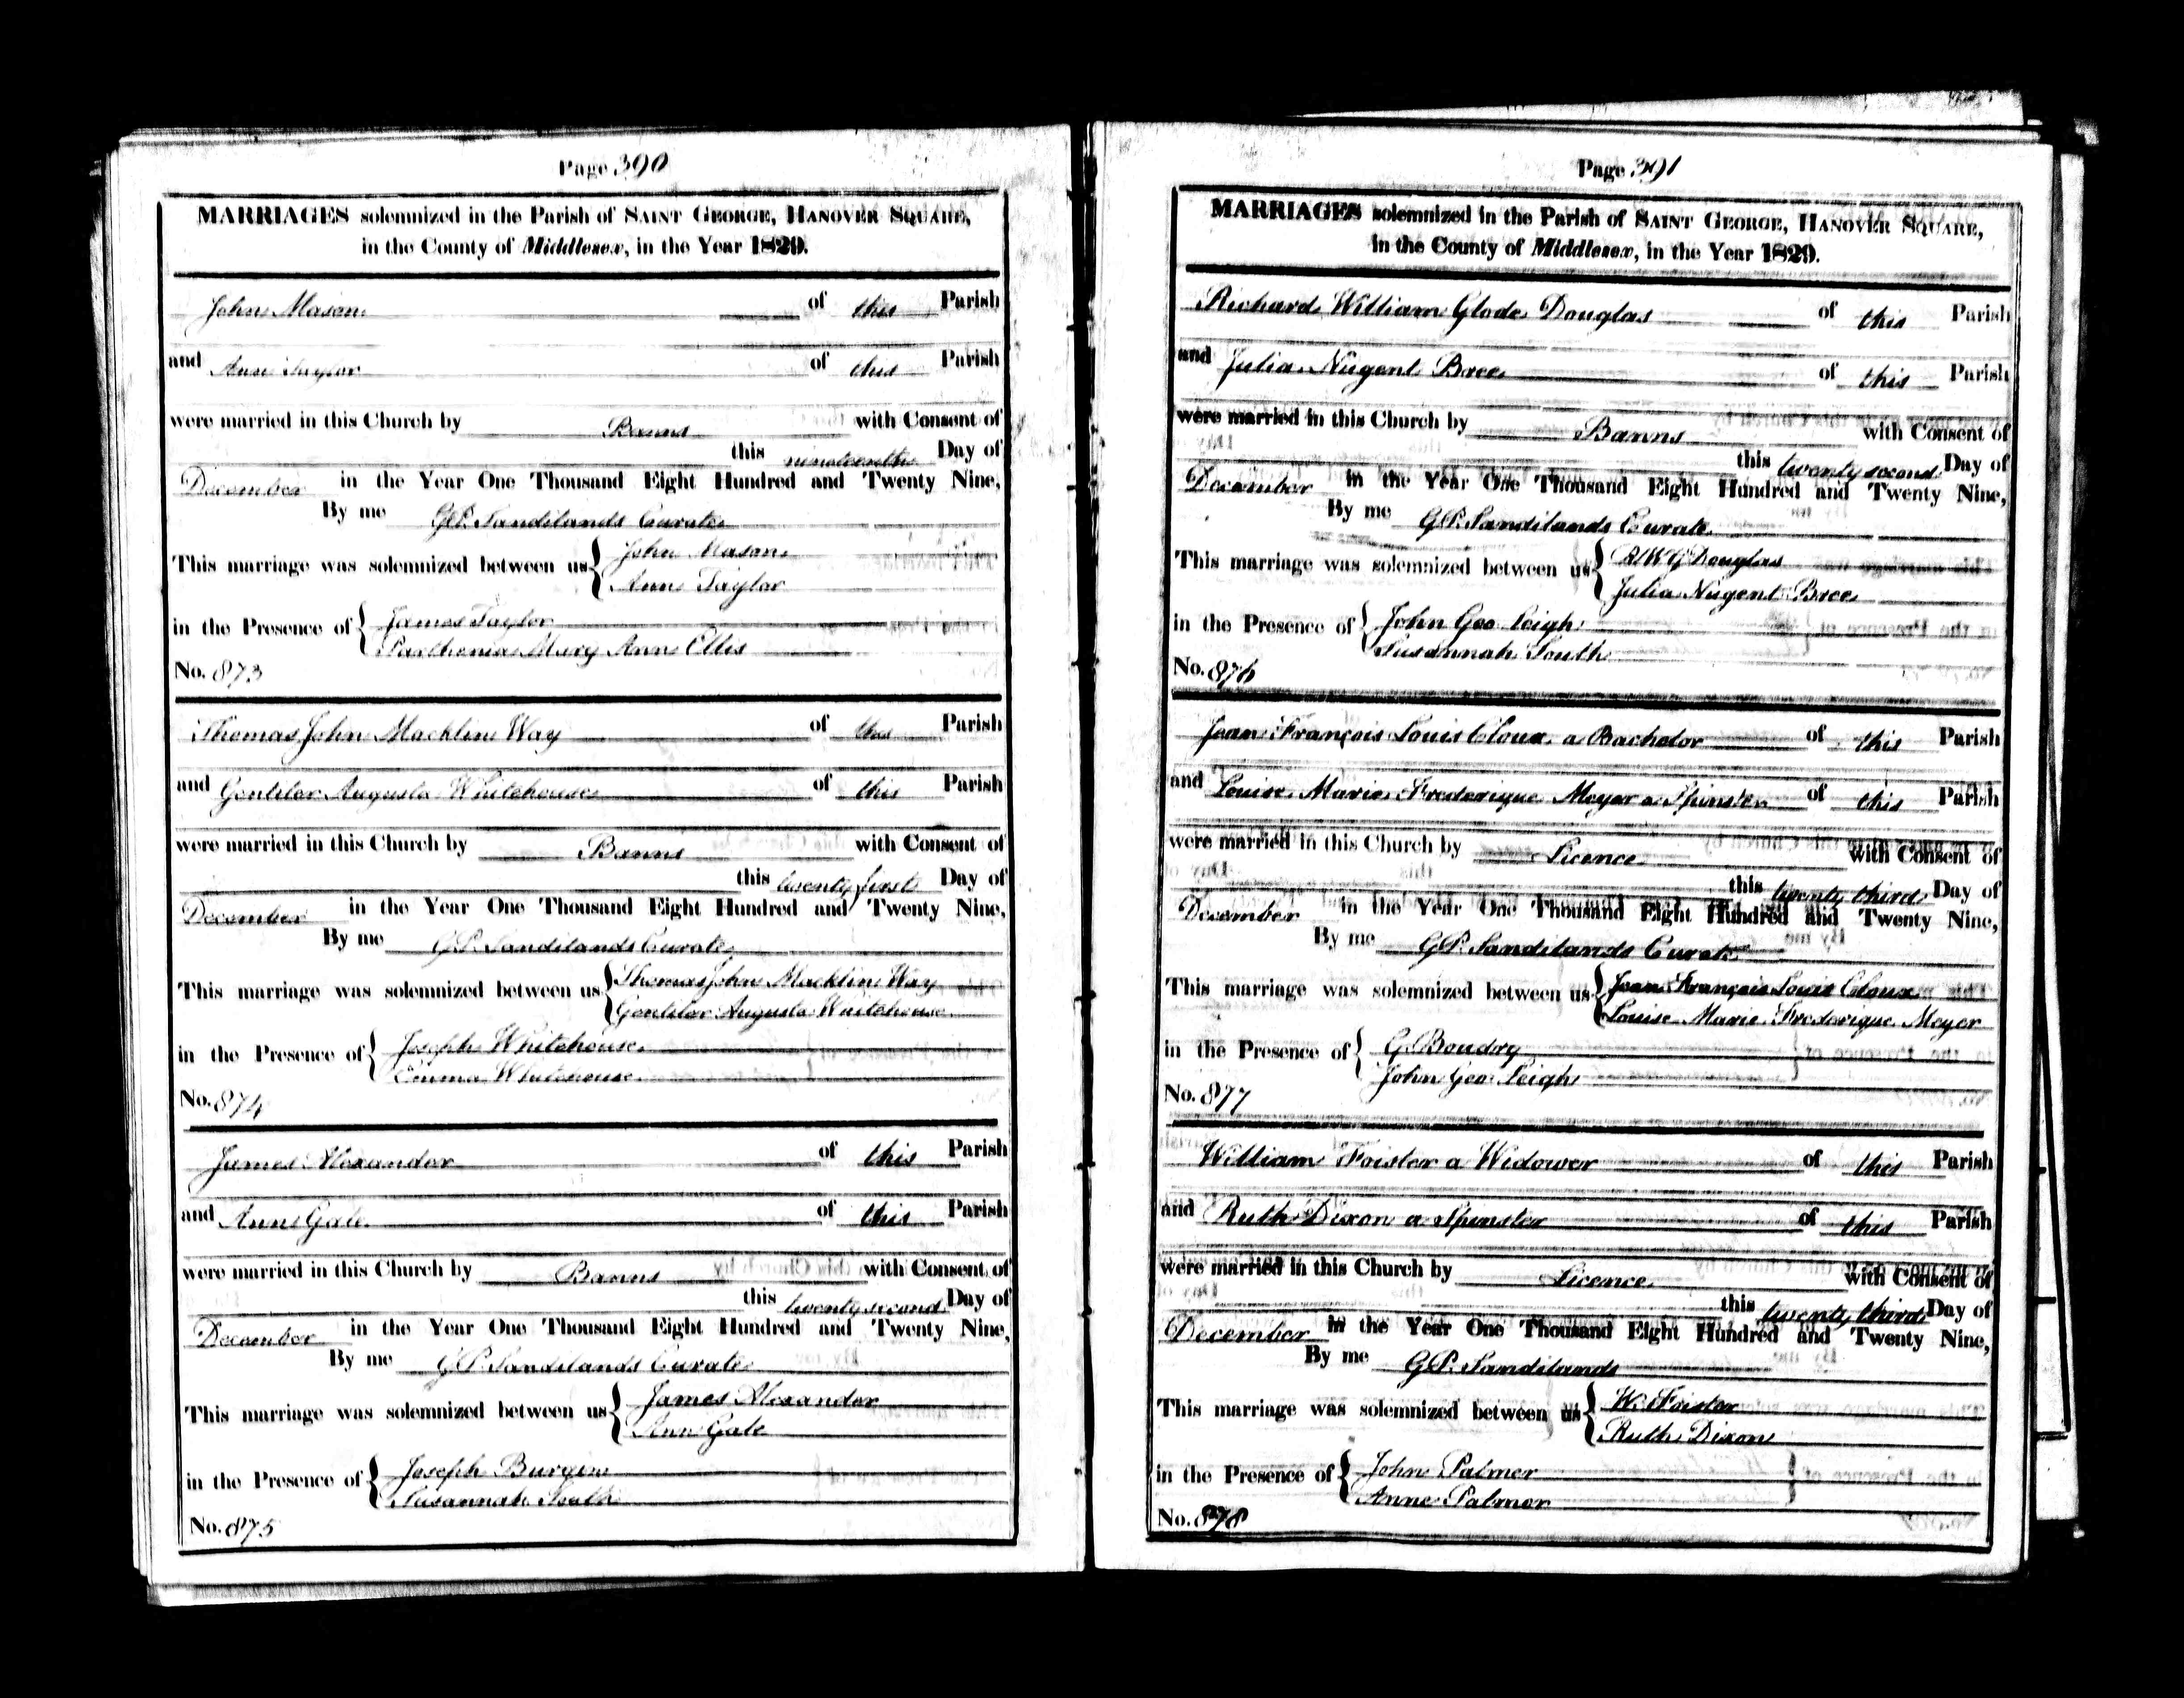 Page 390
MARRIAGES solemnized in the Parish of SAINT GEORGE, HANOVER SQUARE,
in the County of Middlesex, in the Year 1829.
John Mason of this Parish
and Ann Taylor of this Parish
were married in this Church by Banns with Consent of
this nineteenth Day of
December in the Year One Thousand Eight Hundred and Twenty Nine,
By me G.P. Sandilands Curate
This marriage was solemnized between us { John Mason
Ann Taylor
in the Presence of { James Taylor
Parthenia Mary Ann Ellis
No. 873
Thomas John Macklin Way of this Parish
and Augusta Whitehouse of this Parish
were married in this Church by Banns with Consent of
this twenty first Day of
December in the Year One Thousand Eight Hundred and Twenty Nine,
By me G.P. Sandilands Curate
This marriage was solemnized between us { Thomas John Macklin Way
Augusta Whitehouse
in the Presence of { Joseph Whitehouse
Emma Whitehouse
No. 874
James Alexander of this Parish
and Ann Gale of this Parish
were married in this Church by Banns with Consent of
this twenty second Day of
December in the Year One Thousand Eight Hundred and Twenty Nine,
By me G.P. Sandilands Curate
This marriage was solemnized between us { James Alexander
Ann Gale
in the Presence of { Joseph Burgin
Susannah South
No. 875
Page 391
MARRIAGES solemnized in the Parish of SAINT GEORGE, HANOVER SQUARE,
in the County of Middlesex, in the Year 1829.
Richard William Glode Douglas of this Parish
and Julia Nugent Bree of this Parish
were married in this Church by Banns with Consent of
this twenty second Day of
December in the Year One Thousand Eight Hundred and Twenty Nine,
By me G.P. Sandilands Curate
This marriage was solemnized between us { R W G Douglas
Julia Nugent Bree
in the Presence of { John Geo Leigh
Susannah South
No. 876
Jean François Louis Cloux a Bachelor of this Parish
and Louise Marie Frederique Meyer a Spinster of this Parish
were married in this Church by Licence with Consent of
this twenty third Day of
December in the Year One Thousand Eight Hundred and Twenty Nine,
By me G.P. Sandilands Curate
This marriage was solemnized between us { Jean François Louis Cloux
Louise Marie Frederique Meyer
in the Presence of { G. Boudry
John Geo Leigh
No. 877
William Foister a Widower of this Parish
and Ruth Dixon a Spinster of this Parish
were married in this Church by Licence with Consent of
this twenty third Day of
December in the Year One Thousand Eight Hundred and Twenty Nine,
By me G.P. Sandilands
This marriage was solemnized between us { W. Foister
Ruth Dixon
in the Presence of { John Palmer
Anne Palmer
No. 878